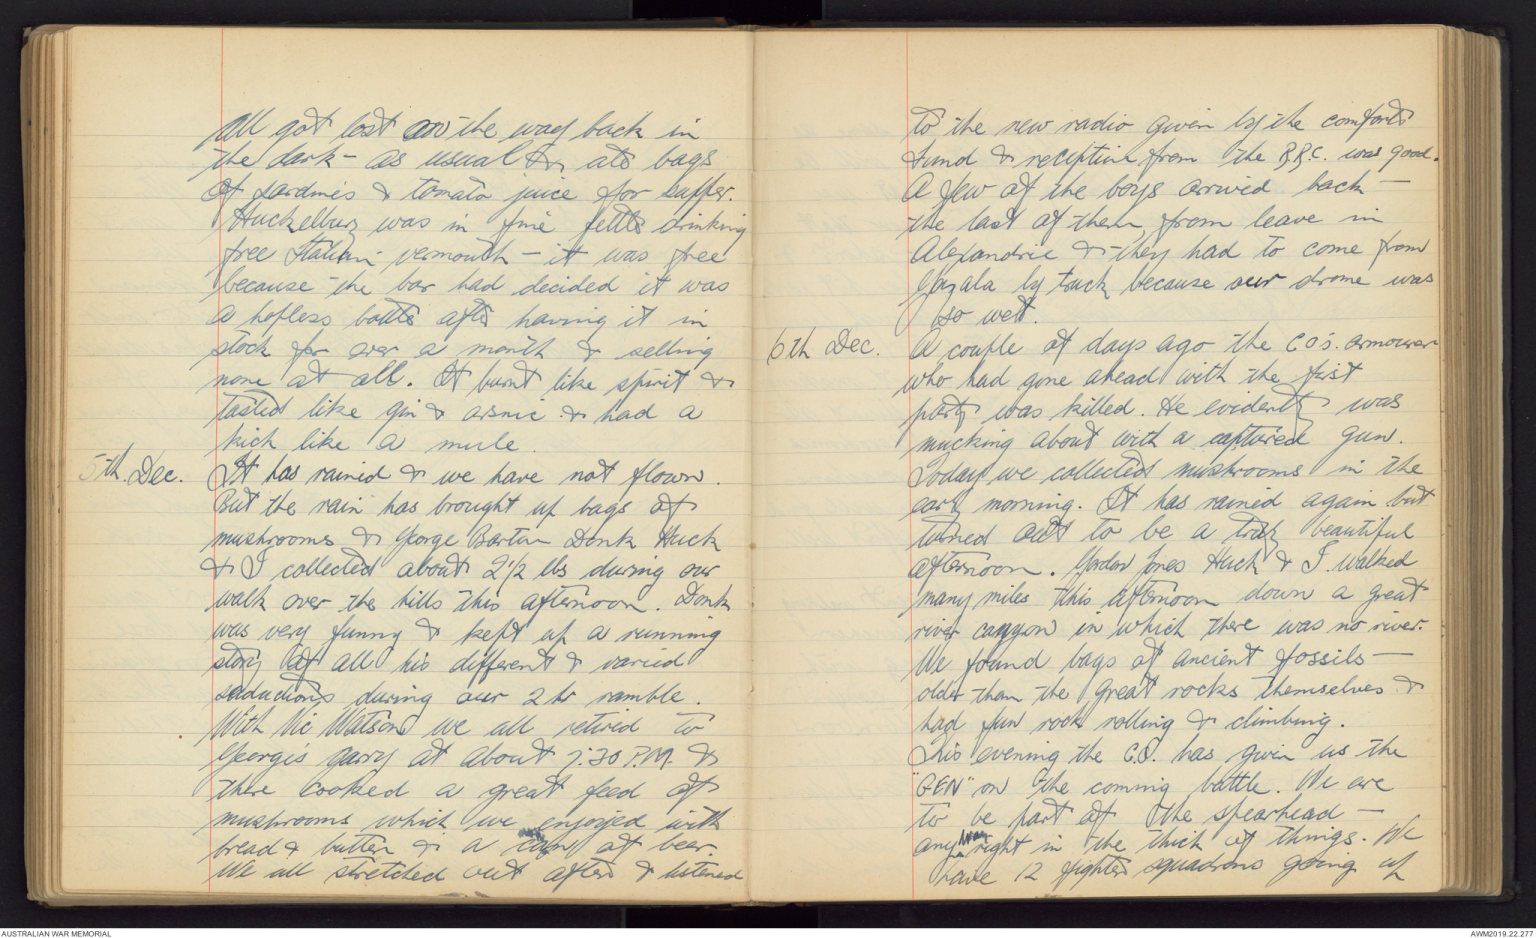 all got lost on the way back in
the dark - as usual & ate bags
of sardines & tomato juice for supper.
Huckelbury was in fine fettle drinking
free Italian vermouth - it was free
because the bar had decided it was
a hopless bottle after having it in
stock for over a month & selling
none at all. It burnt like spirit &
tasted like gin & arsnic & had a
kick like a mule.
5th. Dec. It has rained & we have not flown.
But the rain has brought up bags of
mushrooms & George Barton Donk Huck
& I collected about 2 1/2 lbs during our
walk over the hills this afternoon. Donk
was very funny & kept up a running
story of all his different & varied
seductions during our 2 hr ramble.
With Vic Watson we all retired to
George's garry at about 7.30 P.M. &
there cooked a great feed of
mushrooms which we enjoyed with
bread & butter & a can of beer.
We all stretched out after & listened
to the new radio given by the comforts
fund & reception from the B.B.C. was good.
A few of the boys arrived back -
the last of them from leave in
Alexandria & they had to come from
Gazala by truck because our drome was
so wet.
6th Dec. A couple of days ago the C O's. armourer
who had gone ahead with the first
party was killed. He evidently was
mucking about with a captured gun.
Today we collected mushrooms in the
early morning. It has rained again but
turned out to be a truly beautiful
afternoon. Gordon Jones Huck & I walked
many miles this afternoon down a great
river canyon in which there was no river.
We found bags of ancient fossils -
older than the great rocks themselves &
had fun rock rolling & climbing.
This evening the C.O. has given us the
"GEN" on the coming battle. We are
to be part of the spearhead -
anyway right in the thick of things. We
have 12 fighter squadrons going up
AUSTRALIAN WAR MEMORIAL
AWM2019.22.277